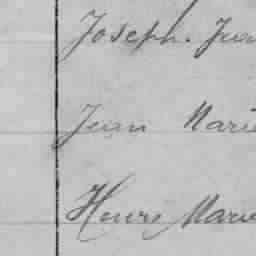 Joseph. Jean
Jean Marie
Henre Marie